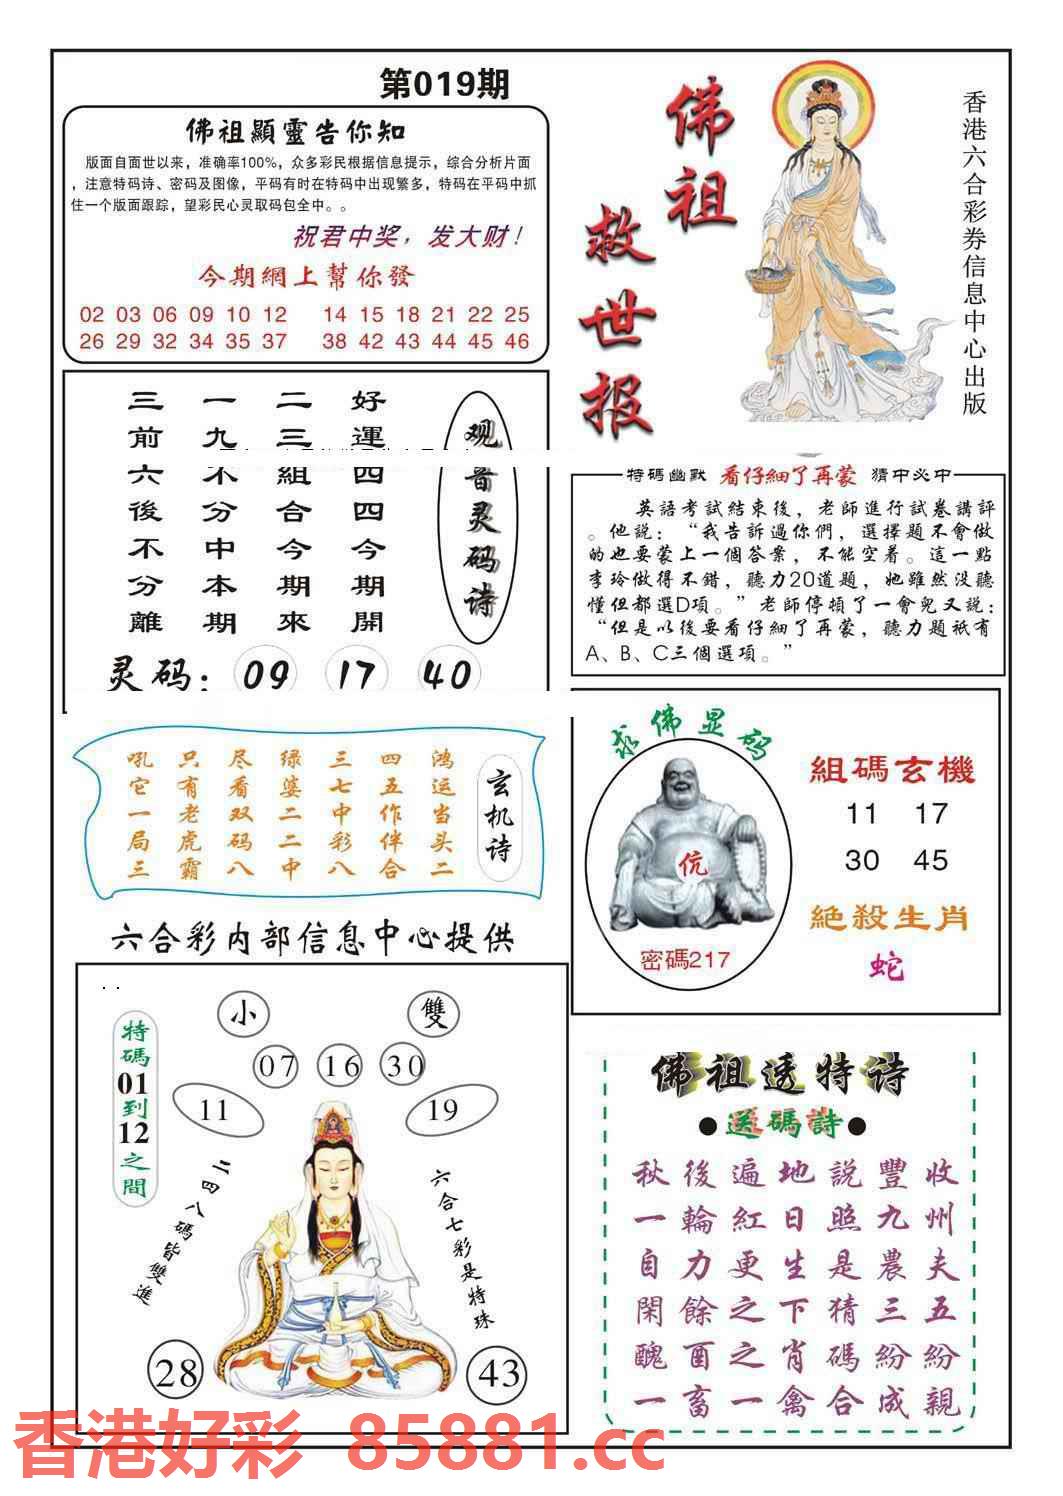 第019期
佛祖顯靈告你知
版面自面世以来，准确率100%，众多彩民根据信息提示，综合分析片面
，注意特码诗、密码及图像，平码有时在特码中出现繁多，特码在平码中抓
住一个版面跟踪，望彩民心灵取码包全中。。
祝君中奖，发大财！
今期網上幫你發
02 03 06 09 10 12 14 15 18 21 22 25
26 29 32 34 35 37 38 42 43 44 45 46
佛祖
救世报
香港六合彩券信息中心出版
观音灵码诗
好運四四今期開
二三組合今期來
一九不分中本期
三前六後不分離
灵码：09 17 40
特碼幽默 看仔細了再蒙 猜中必中
英語考試結束後，老師進行試卷講評
。他說：“我告訴過你們，選擇題不會做
的也要蒙上一個答案，不能空着。這一點
李玲做得不錯，聽力20道題，她雖然没聽
懂但都選D項。”老師停頓了一會兒又説：
“但是以後要看仔細了再蒙，聽力題祇有
A、B、C三個選項。”
玄机诗
鸿运当头二
四五作伴合
三七中彩八
绿婆二二中
尽看双码八
只有老虎霸
吼它一局三
求佛显码
伉
密碼217
組碼玄機
11 17
30 45
絶殺生肖
蛇
六合彩内部信息中心提供
特碼01到12之間
小
雙
07 16 30
11 19
二四八碼皆雙進
六合七彩是特珠
28 43
佛祖透特诗
●送碼詩●
秋後遍地説豐收
一輪紅日照九州
自力更生是農夫
閑餘之下猜三五
醜酉之肖碼紛紛
一畜一禽合成親
香港好彩 85881.cc